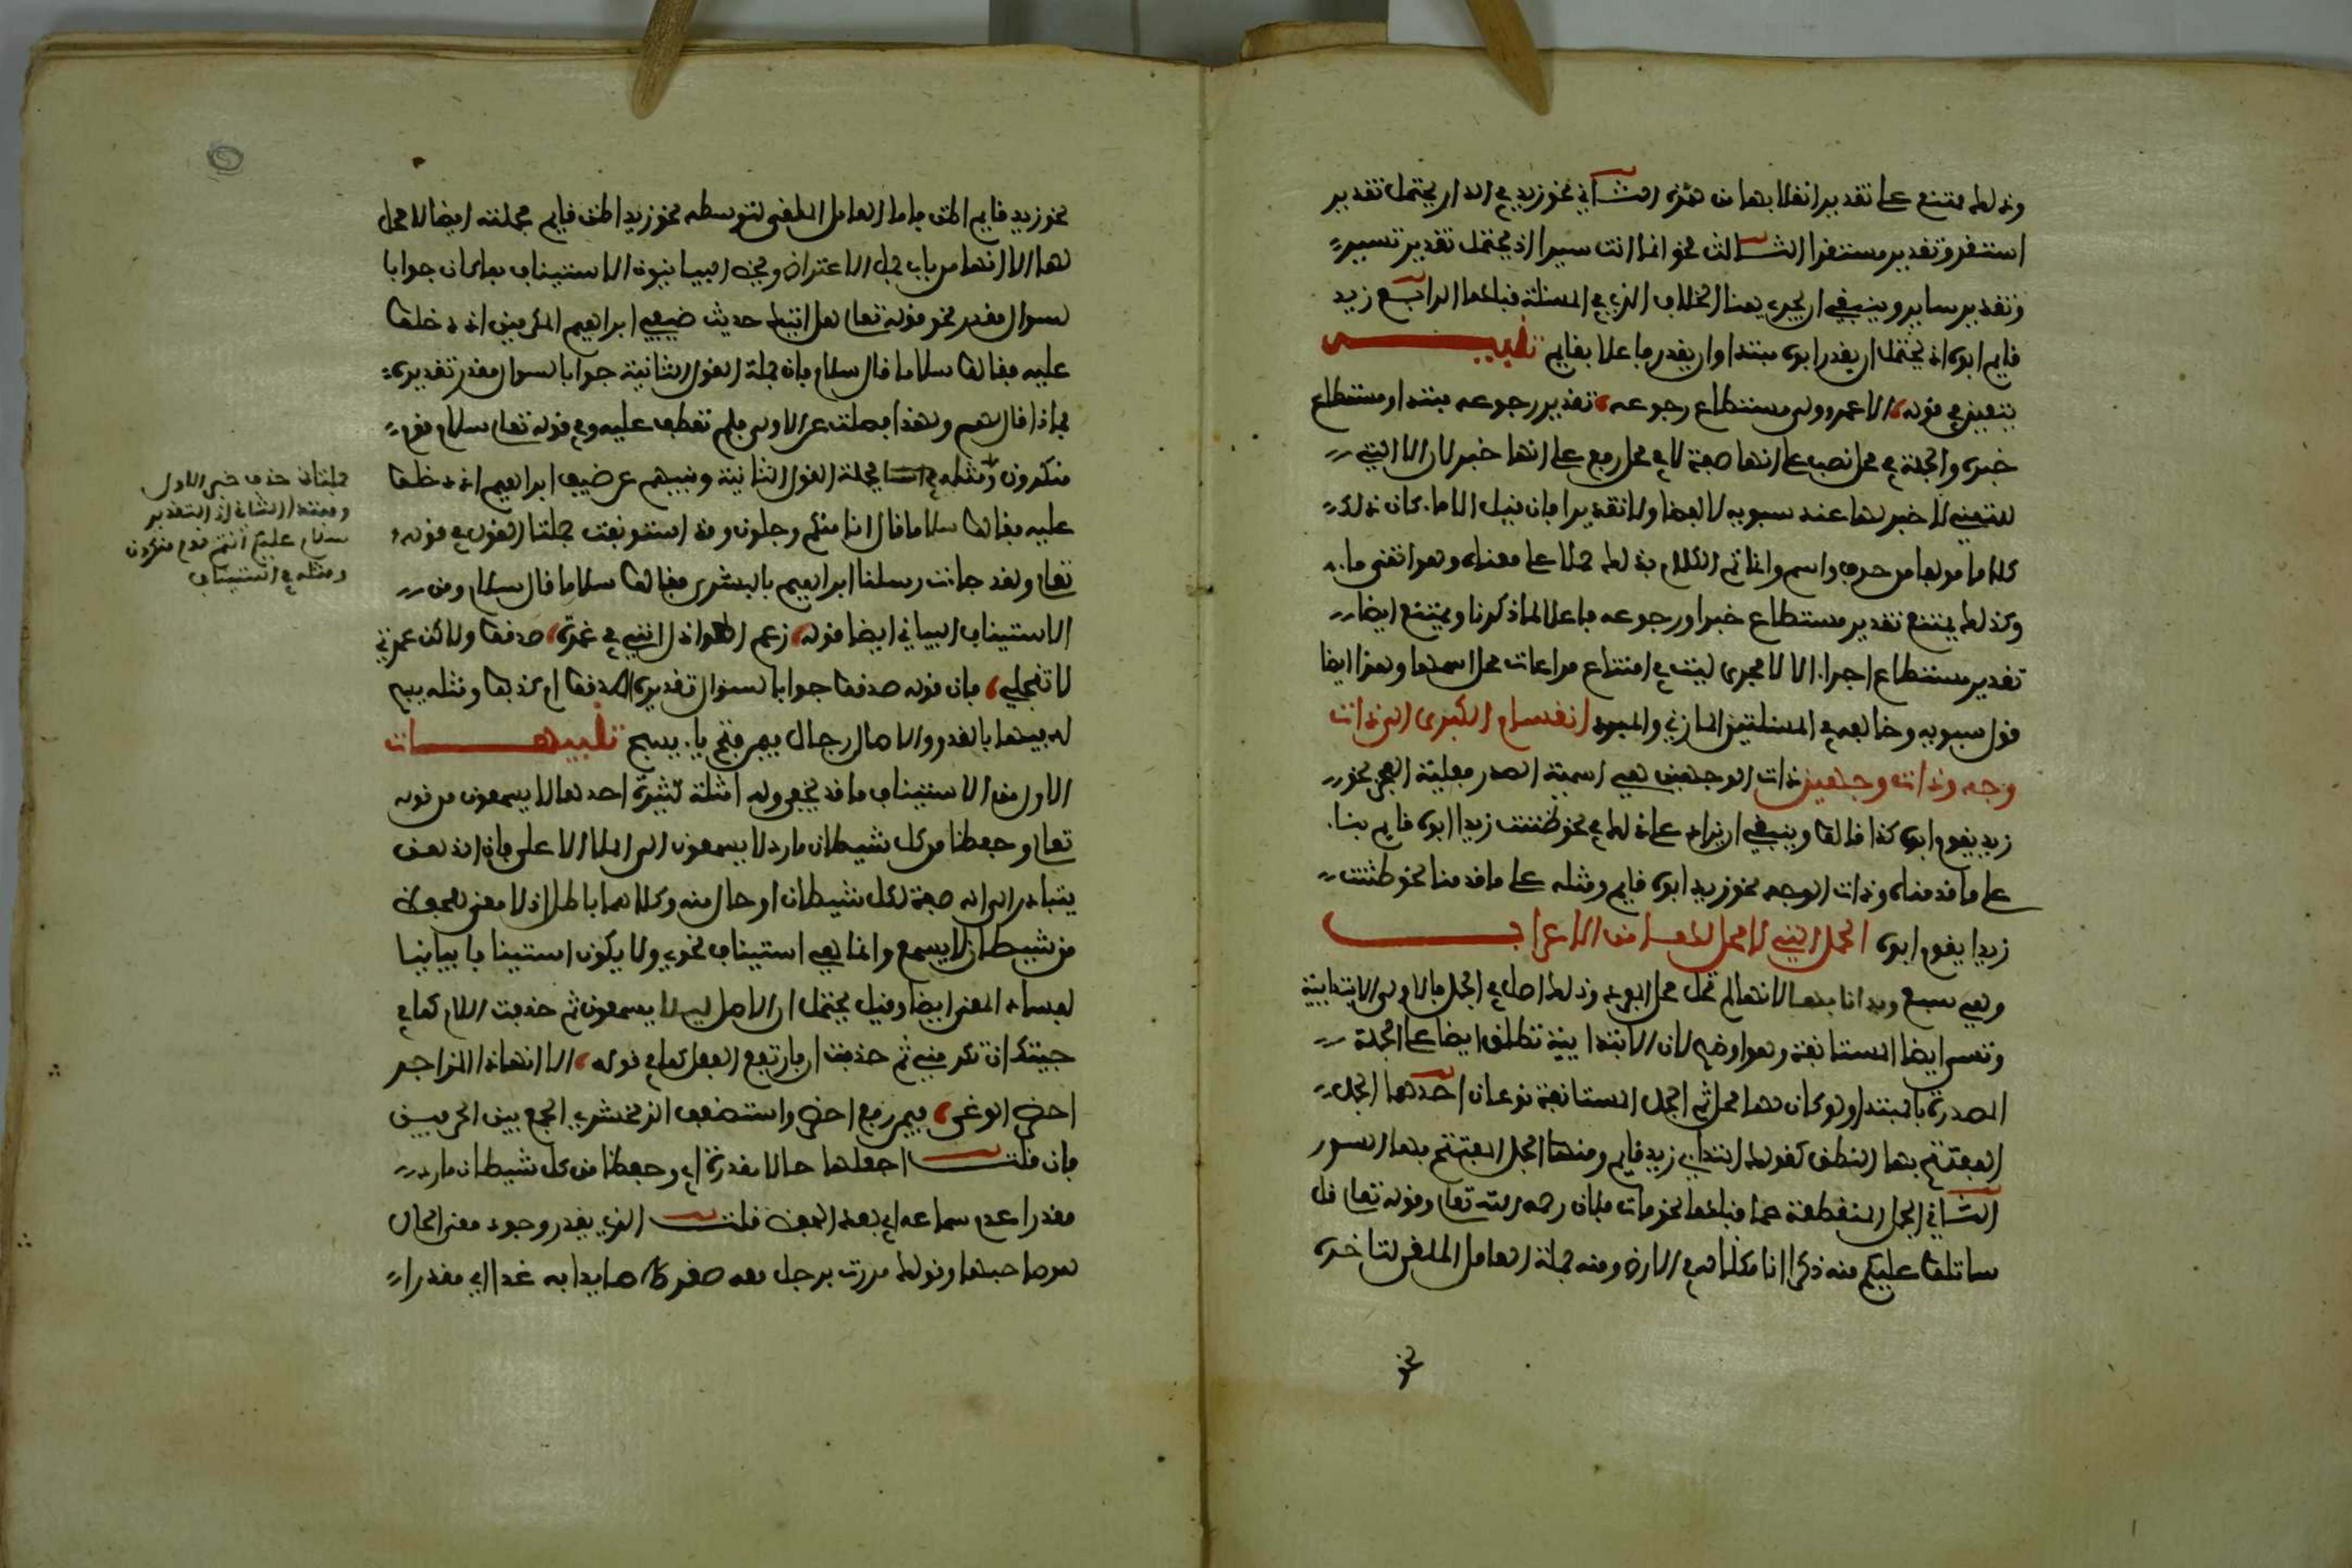 وذلك ممتنع على تقدير انقلابها من همزة الثاني نحو زيد في الدار يحتمل تقدير
استقر وتقدير مستقر الثالث نحو انما انت سيرا اذ يحتمل تقدير تسير
وتقدير ساير وينبغي ان يجري هنا الخلاف الذي في المسئلة قبلها الرابع زيد
قايم ابوه اذ يحتمل ان يقدر ابوه مبتدا وان يقدر فاعلا بقايم تنبيه
يتعين في قوله الا عمر ولى مستطاع رجوعه تقدير رجوعه مبتدا ومستطاع
خبره والجملة في محل نصب على انها صفة لا في محل رفع على انها خبر لان الا التي
للتمني لا خبر لها عند سبويه لا لفظا ولا تقديرا فاذا قيل الا ماء كان ذلك
كلاما مولفا من حرف واسم وانما تم الكلام بذلك حملا على معناه وهو اتمنى ماء
وكذلك يمتنع تقدير مستطاع خبرا ورجوعه فاعلا لما ذكرنا ويمتنع ايضا
تقدير مستطاع اجراء الا مجرى ليت في امتناع مراعات محل اسمها وهذا ايضا
قول سبويه وخالفه في المسئلتين المازني والمبرد انقسام الكبرى الى ذات
وجه وذات وجهين ذات الوجهين هي اسمية الصدر فعلية العجز نحو
زيد يقوم ابوه كذا قالوا وينبغي ان يزاد عكس ذلك في نحو ظننت زيدا ابوه قايم بناء
على ما قدمناه وذات الوجه نحو زيد ابوه قايم ومثله على ما قدمنا نحو ظننت
زيدا يقوم ابوه الجمل التي لا محل لها من الاعراب
وهي سبع وبدانا بها لانها لم تحل محل المفرد وذلك اصل في الجمل فالاولى الابتدايية
وتسمى ايضا المستانفة وهو اوضح لان الابتدايية تطلق ايضا على الجملة
المصدرة بالمبتدا ولو كان لها محل ثم الجمل المستانفة نوعان احدهما الجمل
المفتتح بها النطق كقولك ابتداء زيد قايم ومنها الجمل المفتتح بها السور
الثاني الجمل المنقطعة عما قبلها نحو مات فلان رحمه الله تعالى وقوله تعالى قل
ساتلوا عليكم منه ذكرا انا مكنا له في الارض ومنه جملة العامل الملغى لتاخره
نحو
نحو زيد قايم اظن فاما العامل الملغى لتوسطه نحو زيد اظن قايم فجملته ايضا لا محل
لها الا انها من باب جمل الاعتراض ويخص البيانيون الاستيناف بما كان جوابا
لسوال مقدر نحو قوله تعالى هل اتيك حديث ضيف ابراهيم المكرمين اذ دخلوا
عليه فقالوا سلاما قال سلام فان جملة القول الثانية جوابا لسوال مقدر تقديره
فماذا قال لهم ولهذا فصلت عن الاولى فلم تعطف عليه وفي قوله تعالى سلام قوم
منكرون ومثله في استيناف جملة القول الثانية ونبيهم عن ضيف ابراهيم اذ دخلوا
عليه فقالوا سلاما قال انا منكم وجلون وقد استونفت جملتا القول في قوله
تعالى ولقد جاءت رسلنا ابراهيم بالبشرى فقالوا سلاما قال سلام ومن
الاستيناف البياني ايضا قوله زعم العواذل انني في غمرة صدقوا ولاكن غمرتي
لا تنجلي فان قوله صدقوا جوابا لسوال تقديره اصدقوا ام كذبوا ومثله يسبح
له فيها بالغدو والاصال رجال فيمن فتح باء يسبح تنبيهات
الاول من الاستيناف ما قد يخفى وله امثلة كثيرة احدها لا يسمعون من قوله
تعالى وحفظا من كل شيطان مارد لا يسمعون الى الملا الاعلى فان الذهن
يتبادر الى انه صفة لكل شيطان او حال منه وكلاهما باطل اذ لا معنى للحفظ
من شيطان لا يسمع وانما هي استيناف نحوي ولا يكون استينافا بيانيا
لفساد المعنى ايضا وقيل يحتمل ان الاصل ليلا يسمعون ثم حذفت اللام كما في
جيتك ان تكرمني ثم حذفت ان فارتفع الفعل كما في قوله الا ايهاذا الزاجر
احضر الوغى فيمن رفع احضر واستضعف الزمخشري الجمع بين الحرفين
فان قلت اجعلها حالا مقدرة اي وحفظا من كل شيطان مارد
مقدرا عدم سماعه اي بعد الحفظ قلت الذي يقدر وجود معنى الحال
هو صاحبها وقولك مررت برجل معه صقر صايدا به غدا اي مقدرا
جملتان حذف خبر الاولى
ومبتدا الثانية اذ التقدير
سلام عليكم انتم قوم منكرون
ومثله في استيناف